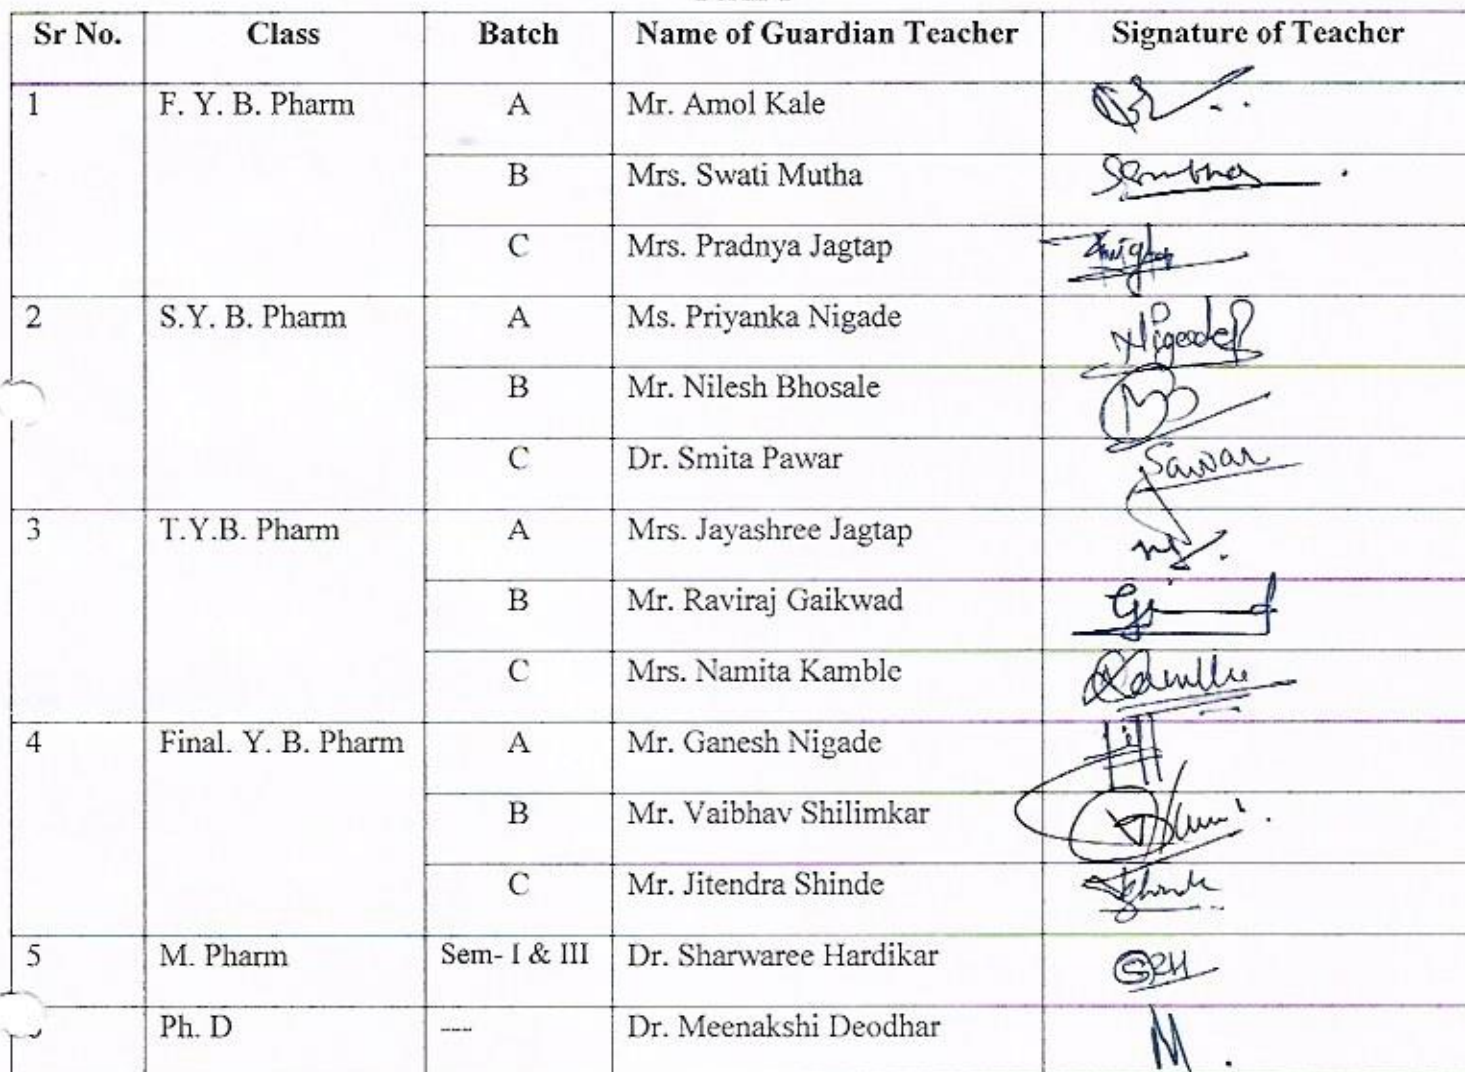 Sr No. Class Batch Name of Guardian Teacher Signature of Teacher
1 F. Y. B. Pharm A Mr. Amol Kale
B Mrs. Swati Mutha
C Mrs. Pradnya Jagtap
2 S.Y. B. Pharm A Ms. Priyanka Nigade Nigade
B Mr. Nilesh Bhosale
C Dr. Smita Pawar
3 T.Y.B. Pharm A Mrs. Jayashree Jagtap
B Mr. Raviraj Gaikwad
C Mrs. Namita Kamble
4 Final. Y. B. Pharm A Mr. Ganesh Nigade
B Mr. Vaibhav Shilimkar
C Mr. Jitendra Shinde
5 M. Pharm Sem- I & III Dr. Sharwaree Hardikar
Ph. D --- Dr. Meenakshi Deodhar